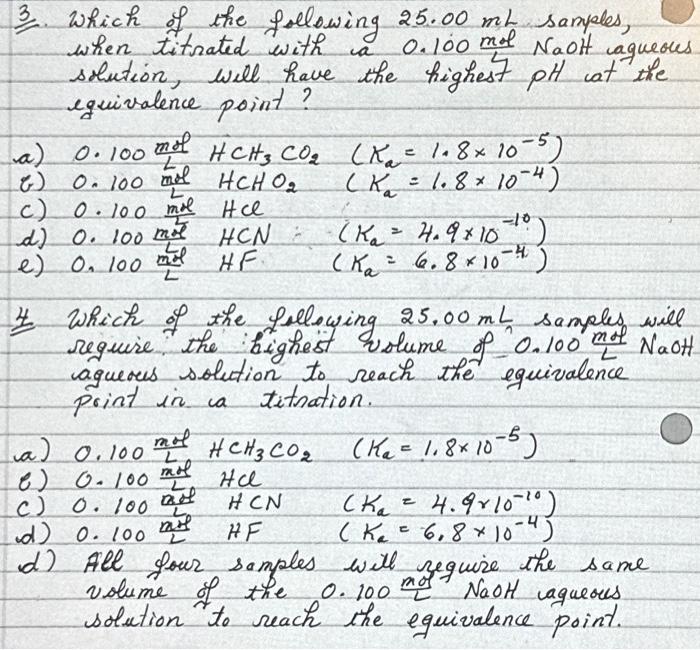 3. Which of the following 25.00 mL samples,
when titrated with a 0.100 mol/L NaOH aqueous
solution, will have the highest pH at the
equivalence point?
a) 0.100 mol/L HCH₃CO₂ (Kₐ = 1.8 × 10⁻⁵)
b) 0.100 mol/L HCHO₂ (Kₐ = 1.8 × 10⁻⁴)
c) 0.100 mol/L HCl
d) 0.100 mol/L HCN (Kₐ = 4.9 × 10⁻¹⁰)
e) 0.100 mol/L HF (Kₐ = 6.8 × 10⁻⁴)
4. Which of the following 25.00 mL samples will
require the highest volume of 0.100 mol/L NaOH
aqueous solution to reach the equivalence
point in a titration.
a) 0.100 mol/L HCH₃CO₂ (Kₐ = 1.8 × 10⁻⁵)
b) 0.100 mol/L HCl
c) 0.100 mol/L HCN (Kₐ = 4.9 × 10⁻¹⁰)
d) 0.100 mol/L HF (Kₐ = 6.8 × 10⁻⁴)
d) All four samples will require the same
volume of the 0.100 mol/L NaOH aqueous
solution to reach the equivalence point.